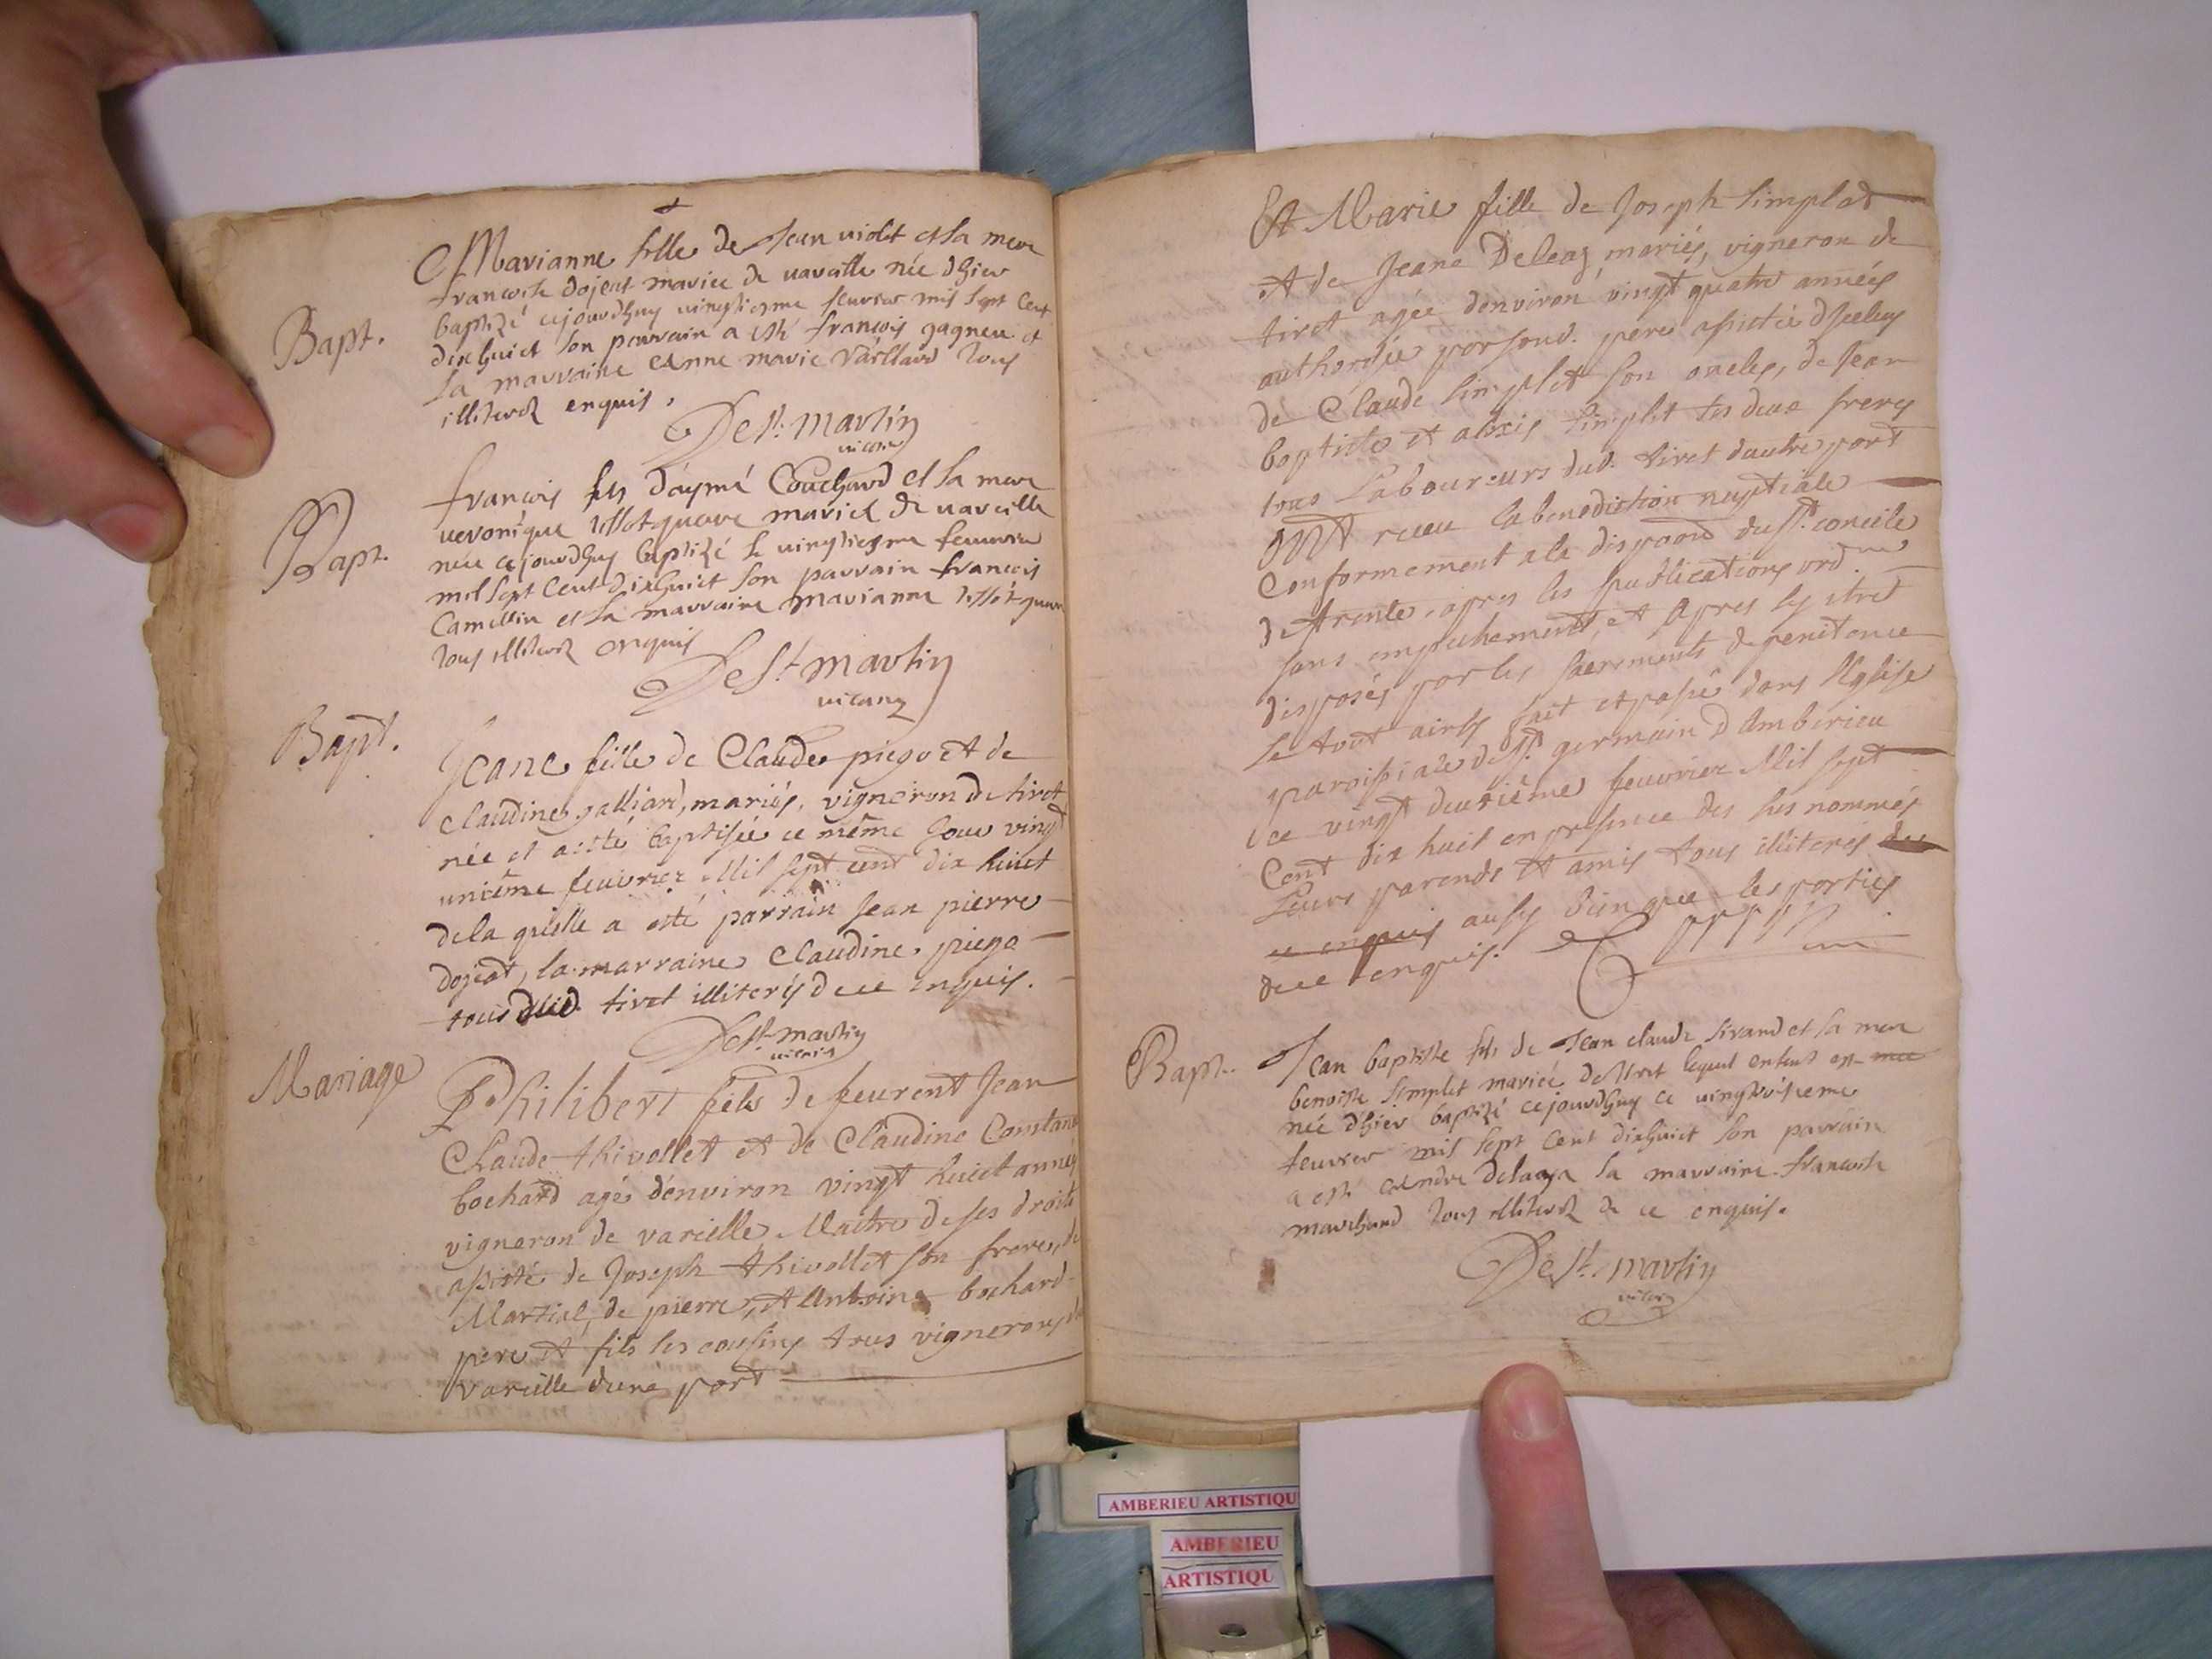 Bapt.
Marianne fille de Jean violet et sa mere
francoise dojeat mariée de vareille née dhier
baptizé cejourdhuy vingtiesme feuvrier mil sept cent
dixhuict son parrain a esté françois gagneu et
la marraine Anne marie vaillard tous
illiterez enquis.
De St. martin
vicaire
Bapt.
francois fils d'aymé Couchard et sa mere
veronique mariez de vareille
née cejourdhuy baptizé le vingtiesme feuvrier
mil sept cent dixhuict son parrain francois
Camellin et la marraine marianne
tous illiterez enquis
De St. martin
vicaire
Bapt.
Jeane fille de Claude piego et de
Claudine galliard, mariés, vigneron de tiret
née et a esté baptisée ce même jour vingt
unième feuvrier Mil sept cent dix huict
de la quelle a esté parrain Jean pierre
dojeat, la marraine Claudine piego
tous dud. tiret illiterés de ce enquis.
De St. martin
vicaire
Mariage
Philibert fils de feu Jean
Claude thivollet et de Claudine Constance
bochard agé d'environ vingt huict années
vigneron de vareille Maitre de ses droits
assisté de Joseph thivollet son frere, de
Martial, de pierre, et Antoine bochard
pere et fils ses cousins tous vignerons de
vareille d'une part
Et Marie fille de Joseph simplet
et de Jeane Deleaz mariés, vigneron de
tiret agée denviron vingt quatre années
authorisée par sond. pere assistée d'iceluy
de Claude simplet son oncle, de Jean
baptiste et alexis simplet ses deux freres
tous Laboureurs dud. tiret dautre part
ont receu la benediction nuptiale
Conformement a la disposon du St. concile
de trente, apres les publications ord.res
sans empechement, et apres s'y etre
disposés par les sacrements de penitence
le tout ainsy fait et passé dans l'eglise
paroissiale de St. germain d'Amberieu
ce vingt deuxième feuvrier Mil sept
Cent dix huit en presence des sus nommés
Leurs parends et amis tous illiterés de
ce enquis aussy bien que les parties
de ce enquis.
Bapt.
Jean baptiste fils de Jean claude sirand et sa mere
benoiste simplet mariée de tiret lequel enfant est
née dhier baptizé cejourdhuy ce vingtroisieme
feuvrier mil sept cent dixhuict son parrain
a esté andre delaya la marraine francoise
marchand tous illiterez de ce enquis.
De St. martin
vicaire
AMBERIEU ARTISTIQU
AMBERIEU
ARTISTIQU